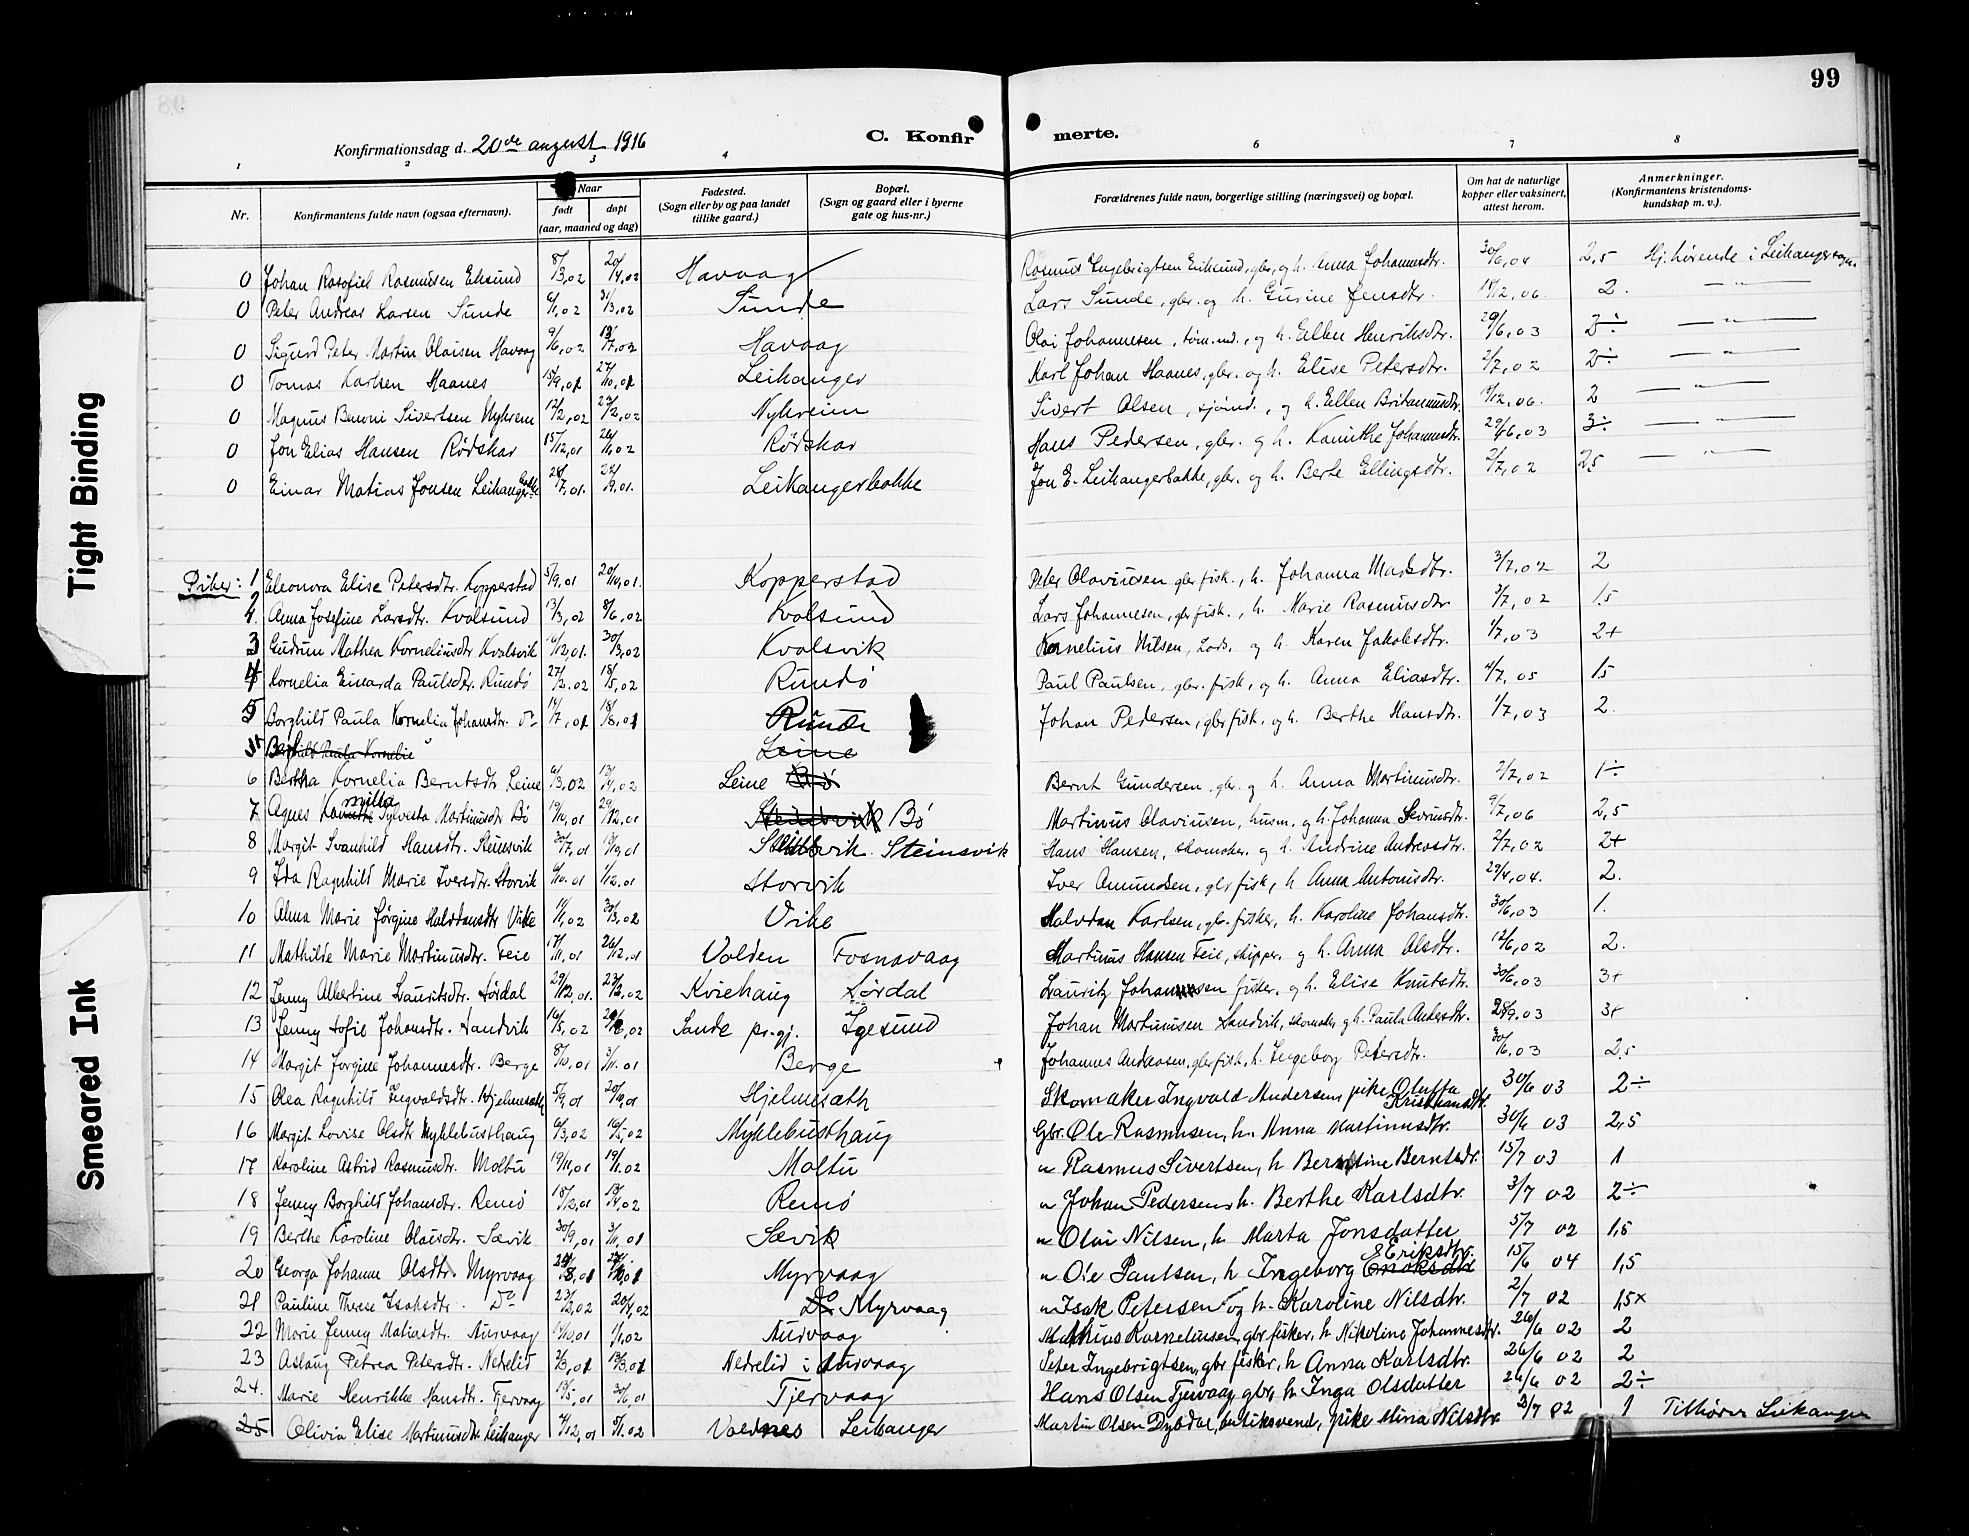 99
Konfirmationsdag d. 20de august 1916
C. Konfirmerte.
1 2 3 4 6 7 8
Nr.
Konfirmantens fulde navn (ogsaa efternavn).
Naar
født
døpt
(aar, maaned og dag)
Fødested.
(Sogn eller by og paa landet tillike gaard.)
Bopæl.
(Sogn og gaard eller i byerne gate og hus-nr.)
Forældrenes fulde navn, borgerlige stilling (næringsvei) og bopæl.
Om hat de naturlige kopper eller vaksinert, attest herom.
Anmerkninger.
(Konfirmantens kristendomskundskap m. v.).
0 Johan Rasmusen Eksund 8/13,02 20/4,02 Havaag Rasmus Engebrigtsen Eriksund, gbr., og h. Anna Johannesdtr. 30/6,04 2,5 Hj.hørende i Leikanger sogn.
0 Peter Andreas Larsen Sunde 6/1,02 31/3,02 Sunde Lars Sunde, gbr. og h. Gurine Jensdtr. 2. — " —
0 Sigurd Peter Martin Olaisen Havaag 9/6,02 13/7,02 Havaag Olai Johannesen, tøm.md., og h. Ellen Henriksdtr. 29/6,03 2÷ — " —
0 Tomas Karlsen Haanes 15/9,01 27/10,01 Leikanger Karl Johan Haanes, gbr. og h. Elise Petersdtr. 2/7,02 2÷ — " —
0 Magnus Bernni Sivertsen Nykrem 12/2,02 Nykreim Sivert Olsen, sjømd., og h. Ellen 2 — " —
0 Jon Elias Hansen Rødskar 15/12,01 Rødskar Hans Pedersen, gbr. og h. Kanuthe Johannesdtr. 29/6,03 3÷ — " —
0 Einar Matias Jonsen Leikangerbakke Leikangerbakke Jon E. Leikangerbakke, gbr. og h. Berte Ellingsdtr. 2/7,02 2,5 — " —
Piker:
1 Eleonora Elise Petersdtr. Kopperstad 5/9,01 20/10,01. Kopperstad Peter Olaviusen gbr fisk., h. Johanna Madsdtr. 3/7,02 2
2 Anna Josefine Larsdtr. Kvalsund 13/3,02 8/6,02 Kvalsund Lars Johannesen, gbr fisk., h. Marie Rasmusdtr 3/7,02 1.5
3 Gudrun Mathea Korneliusdtr Kvalsvik 16/12,01. 30/3,02 Kvalsvik Kornelius Nilsen, og h. Karen Jakobsdtr. 1/7,03 2+
4 Kornelia Einarda Paulsdtr. Rundø 27/3.02 18/5,02 Rundø Paul Paulsen, gbr. fisk, og h. Anna Eliasdtr. 4/7, 05 1.5
5 Borghild Paula Kornelia Johansdtr. Do 14/7,01 18/8,01 Runde Johan Pedersen, gbr fisk. og h. Berthe Hansdtr. 1/7,03 2.
Borghild Paula Kornelie Leine
6 Bertha Kornelia Berntsdtr Leine 6/3,02 13/4,02 Leine Bø Bernt Gundersen, gbr. og h. Anna Martinusdtr. 2/7,02 1÷
7 Agnes Kamilla Sylvesta Martinusdtr Bø 19/10,01 29/12,01 Steinsvik Bø Martinus Olaviusen, husm. og h. Johanna Severinsdtr. 9/7,06 2,5
8 Margit Svanhild Hansdtr. Steinsvik 30/7,01 13/10,01 Steinsvik Hans Hansen, skomaker. og h. Andrine Andreasdtr. 2/7,02 2+
9 Ida Ragnhild Marie Iversdtr. Storvik 6/10.01 1/12,01 Storvik Iver Amundsen, gbr fisk, h Anna Antonsdtr. 29/4,04. 2.
10 Alma Marie Jørgine Halvdansdtr Vike 14/1,02 30/3,02 Vike Halvdan Karlsen, gbr. fisker, h. Karoline Johansdtr. 30/6,03 1.
11 Mathilde Marie Martinusdtr. Teie 17/11,01 26/12,01 Volden Fosnavaag Martinus Hansen Teie, skipper. og h. Anna Olsdtr. 12/6,02 2.
12 Jenny Albertine Lauritsdtr. Lørdal 29/12,01. 23/3,02 Kviehaug Lørdal Lauritz Johannesen fisker, og h. Elise Knutsdtr. 30/6,03 3+
13 Jenny Sofie Johansdtr. Sandvik 16/5,02 Sande pr.gj. Igesund Johan Martinusen Sandvik, skomaker og h. Paula Andersdtr. 3+
14 Margit Jorgine Johannesdtr. Berge 8/10,01 3/11.01 Berge Johannes Andreasen, gbr fisk, h. Ingeborg Petersdtr. 30/6,03 2,5
15 Olea Ragnhild Ingvaldsdtr. Hjelmsæth 5/9,01 20/10,01 Hjelmsæth Skomaker Ingvald Andersen, pike Oluffa Kristiansdtr. 30/6 03 2÷
16 Margit Lovise Olsdtr Myklebusthaug 6/3,02 16/5,02 Myklebusthaug Gbr. Ole Rasmusen, h. Anna Martinusdtr. 30/6 03 2,5
17 Karoline Astrid Rasmusdtr. Moltu 19/11,01 19/1.02 Moltu " Rasmus Sivertsen, h Berntine Berntsdtr. 15/7 03 1
18 Jenny Borghild Johansdtr. Remø 18/12,01 13/4,02 Remø " Johan Pedersen, h. Berthe Karlsdtr. 3/7 02 2÷
19 Berthe Karoline Olaisdtr. Sævik 30/9,01 3/11,01 Sævik " Olai Nilsen, h. Marta Jonsdatter 5/7 02 1,5
20 Georga Johanne Olsdtr. Myrvaag Myrvaag " Ole Paulsen, h Ingeborg Enoksdtr Eriksdtr. 15/6 04 1,5
21 Pauline Therese Isaksdtr. Do 23/2,02 20/4,02 Do Myrvaag " Isak Petersen og h. Karoline Nilsdtr. 2/7 02 1,5x
22 Marie Jenny Matiasdtr. Aurvaag 1/1,02 Aurvaag Mathias Korneliusen, gbr fisker, h Nikoline Johannesdtr. 26/6 02 2
23 Aslaug Petrea Petersdtr. Nedrelid Nedrelid i Aurvaag Peter Ingebrigtsen, gbr fisker, h Anna Karlsdtr. 26/6 02 2
24. Marie Henrikke Hansdtr. Tjervaag 19/5,01 30/6,01 Tjervaag Hans Olsen Tjervaag gbr, h Inga Olsdatter 26/6 02 2÷
25 Olivia Elise Martinusdtr. Leikanger 5/1.02 Voldnes Leikanger Martin Olsen Dybdal, butiksvend, pike Mina Nilsdtr. 2/7 02 1 Tilhører Leikanger
Tight Binding
Smeared Ink